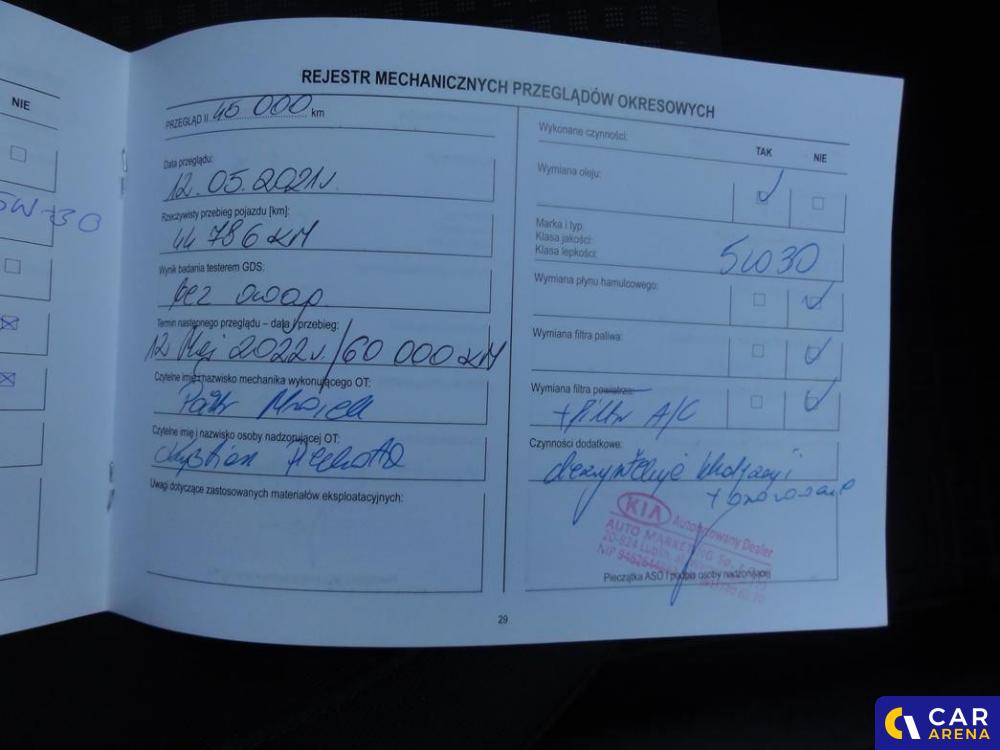 NIE
5W-30
REJESTR MECHANICZNYCH PRZEGLĄDÓW OKRESOWYCH
PRZEGLĄD II. 45 000 km
Data przeglądu:
12.05.2021r.
Rzeczywisty przebieg pojazdu [km]:
44 786 KM
Wynik badania testerem GDS:
bez uwag
Termin następnego przeglądu – data / przebieg:
12 Maj 2022r./60 000 KM
Czytelne imię i nazwisko mechanika wykonującego OT:
Piotr
Czytelne imię i nazwisko osoby nadzorującej OT:
Piechota
Uwagi dotyczące zastosowanych materiałów eksploatacyjnych:
Wykonane czynności:
TAK NIE
Wymiana oleju:
Marka i typ:
Klasa jakości:
Klasa lepkości:
5W30
Wymiana płynu hamulcowego:
Wymiana filtra paliwa:
Wymiana filtra powietrza:
+ filtr A/C
Czynności dodatkowe:
KIA Autoryzowany Dealer
AUTO MARKETING Sp.
20-824 Lublin,
NIP
Pieczątka ASO i podpis osoby nadzorującej
29
CAR
ARENA